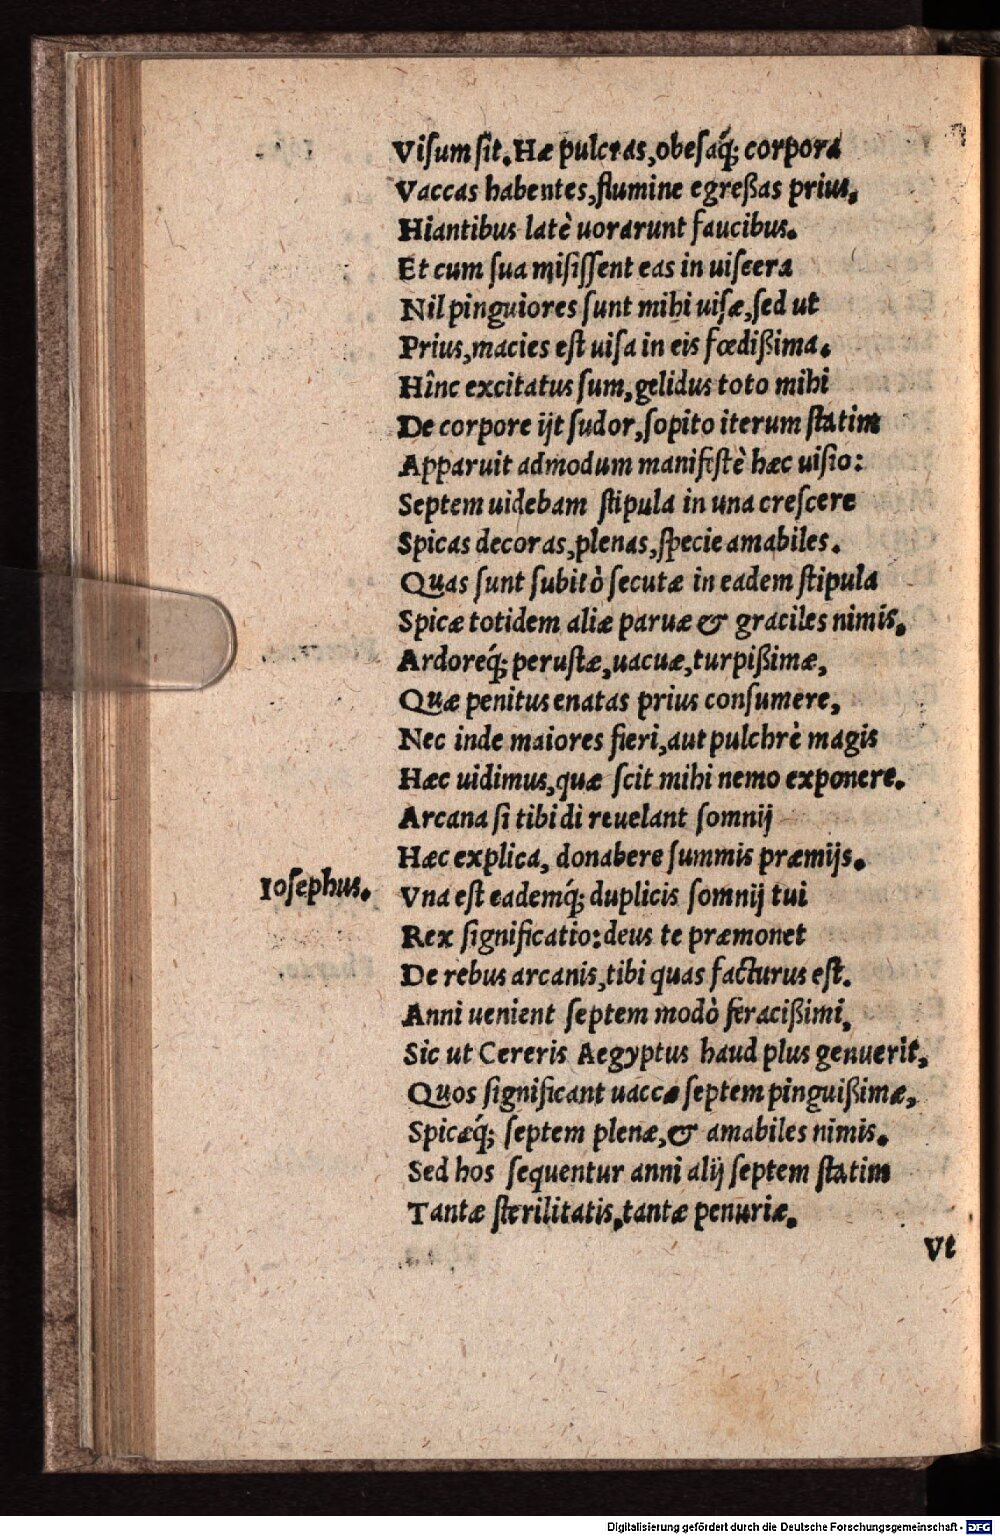 Viſum ſit. Hæ pulcras, obeſaq́; corpora
Vaccas habentes, flumine egreßas prius,
Hiantibus latè uorarunt faucibus.
Et cum ſua miſiſſent eas in uiſcera
Nil pinguiores ſunt mihi uiſæ, ſed ut
Prius, macies eſt uiſa in eis fœdißima.
Hînc excitatus ſum, gelidus toto mihi
De corpore ijt ſudor, ſopito iterum ſtatim
Apparuit admodum manifeſtè hæc uiſio:
Septem uidebam ſtipula in una creſcere
Spicas decoras, plenas, ſpecie amabiles.
Quas ſunt ſubitò ſecutæ in eadem ſtipula
Spicæ totidem aliæ paruæ & graciles nimis.
Ardoreq́; peruſtæ, uacuæ, turpißimæ,
Quæ penitus enatas prius conſumere,
Nec inde maiores fieri, aut pulchrè magis
Hæc uidimus, quæ ſcit mihi nemo exponere.
Arcana ſi tibi di reuelant ſomnij
Hæc explica, donabere ſummis præmijs.
Ioſephus. Vna eſt eademq́; duplicis ſomnij tui
Rex ſignificatio: deus te præmonet
De rebus arcanis, tibi quas facturus eſt.
Anni uenient ſeptem modò feracißimi,
Sic ut Cereris Aegyptus haud plus genuerit,
Quos ſignificant uaccæ ſeptem pinguißimæ,
Spicæq́; ſeptem plenæ, & amabiles nimis.
Sed hos ſequentur anni alij ſeptem ſtatim
Tantæ ſterilitatis, tantæ penuriæ.
Vt
Digitalisierung gefördert durch die Deutsche Forschungsgemeinschaft - DFG